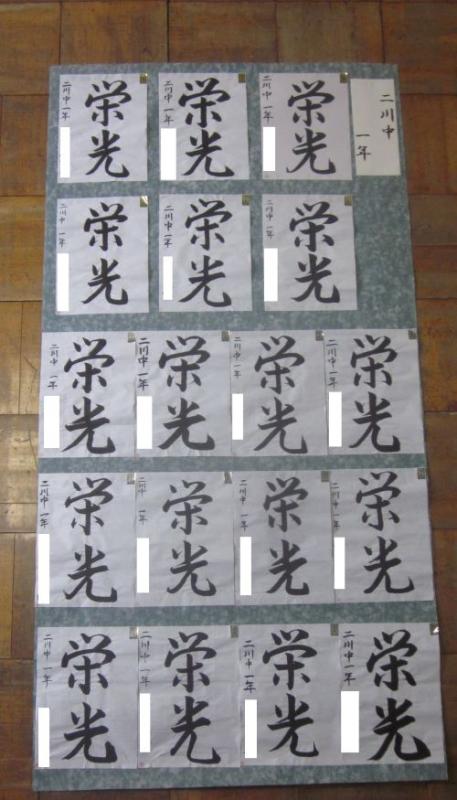 二川中
一年
栄光
二川中 一年
栄光
二川中 一年
栄光
二川中 一年
栄光
二川中 一年
栄光
二川中 一年
栄光
二川中 一年
栄光
二川中 一年
栄光
二川中 一年
栄光
二川中 一年
栄光
二川中 一年
栄光
二川中 一年
栄光
二川中 一年
栄光
二川中 一年
栄光
二川中 一年
栄光
二川中 一年
栄光
二川中 一年
栄光
二川中 一年
栄光
二川中 一年